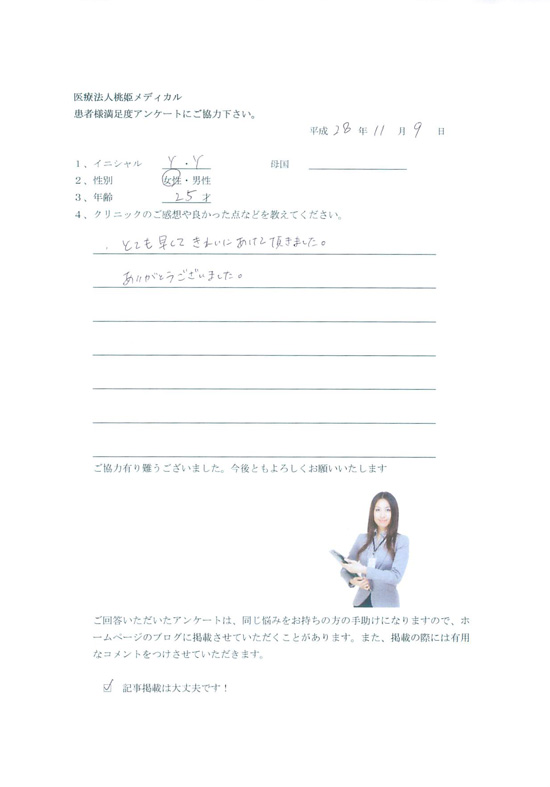 医療法人桃姫メディカル
患者様満足度アンケートにご協力下さい。
平成 28 年 11 月 9 日
1、イニシャル Y・Y 母国
2、性別 女性・男性
3、年齢 25才
4、クリニックのご感想や良かった点などを教えてください。
とても早くて きれいにあけて頂きました。
ありがとうございました。
ご協力有り難うございました。今後ともよろしくお願いいたします
ご回答いただいたアンケートは、同じ悩みをお持ちの方の手助けになりますので、ホ
ームページのブログに掲載させていただくことがあります。また、掲載の際には有用
なコメントをつけさせていただきます。
☑ 記事掲載は大丈夫です！